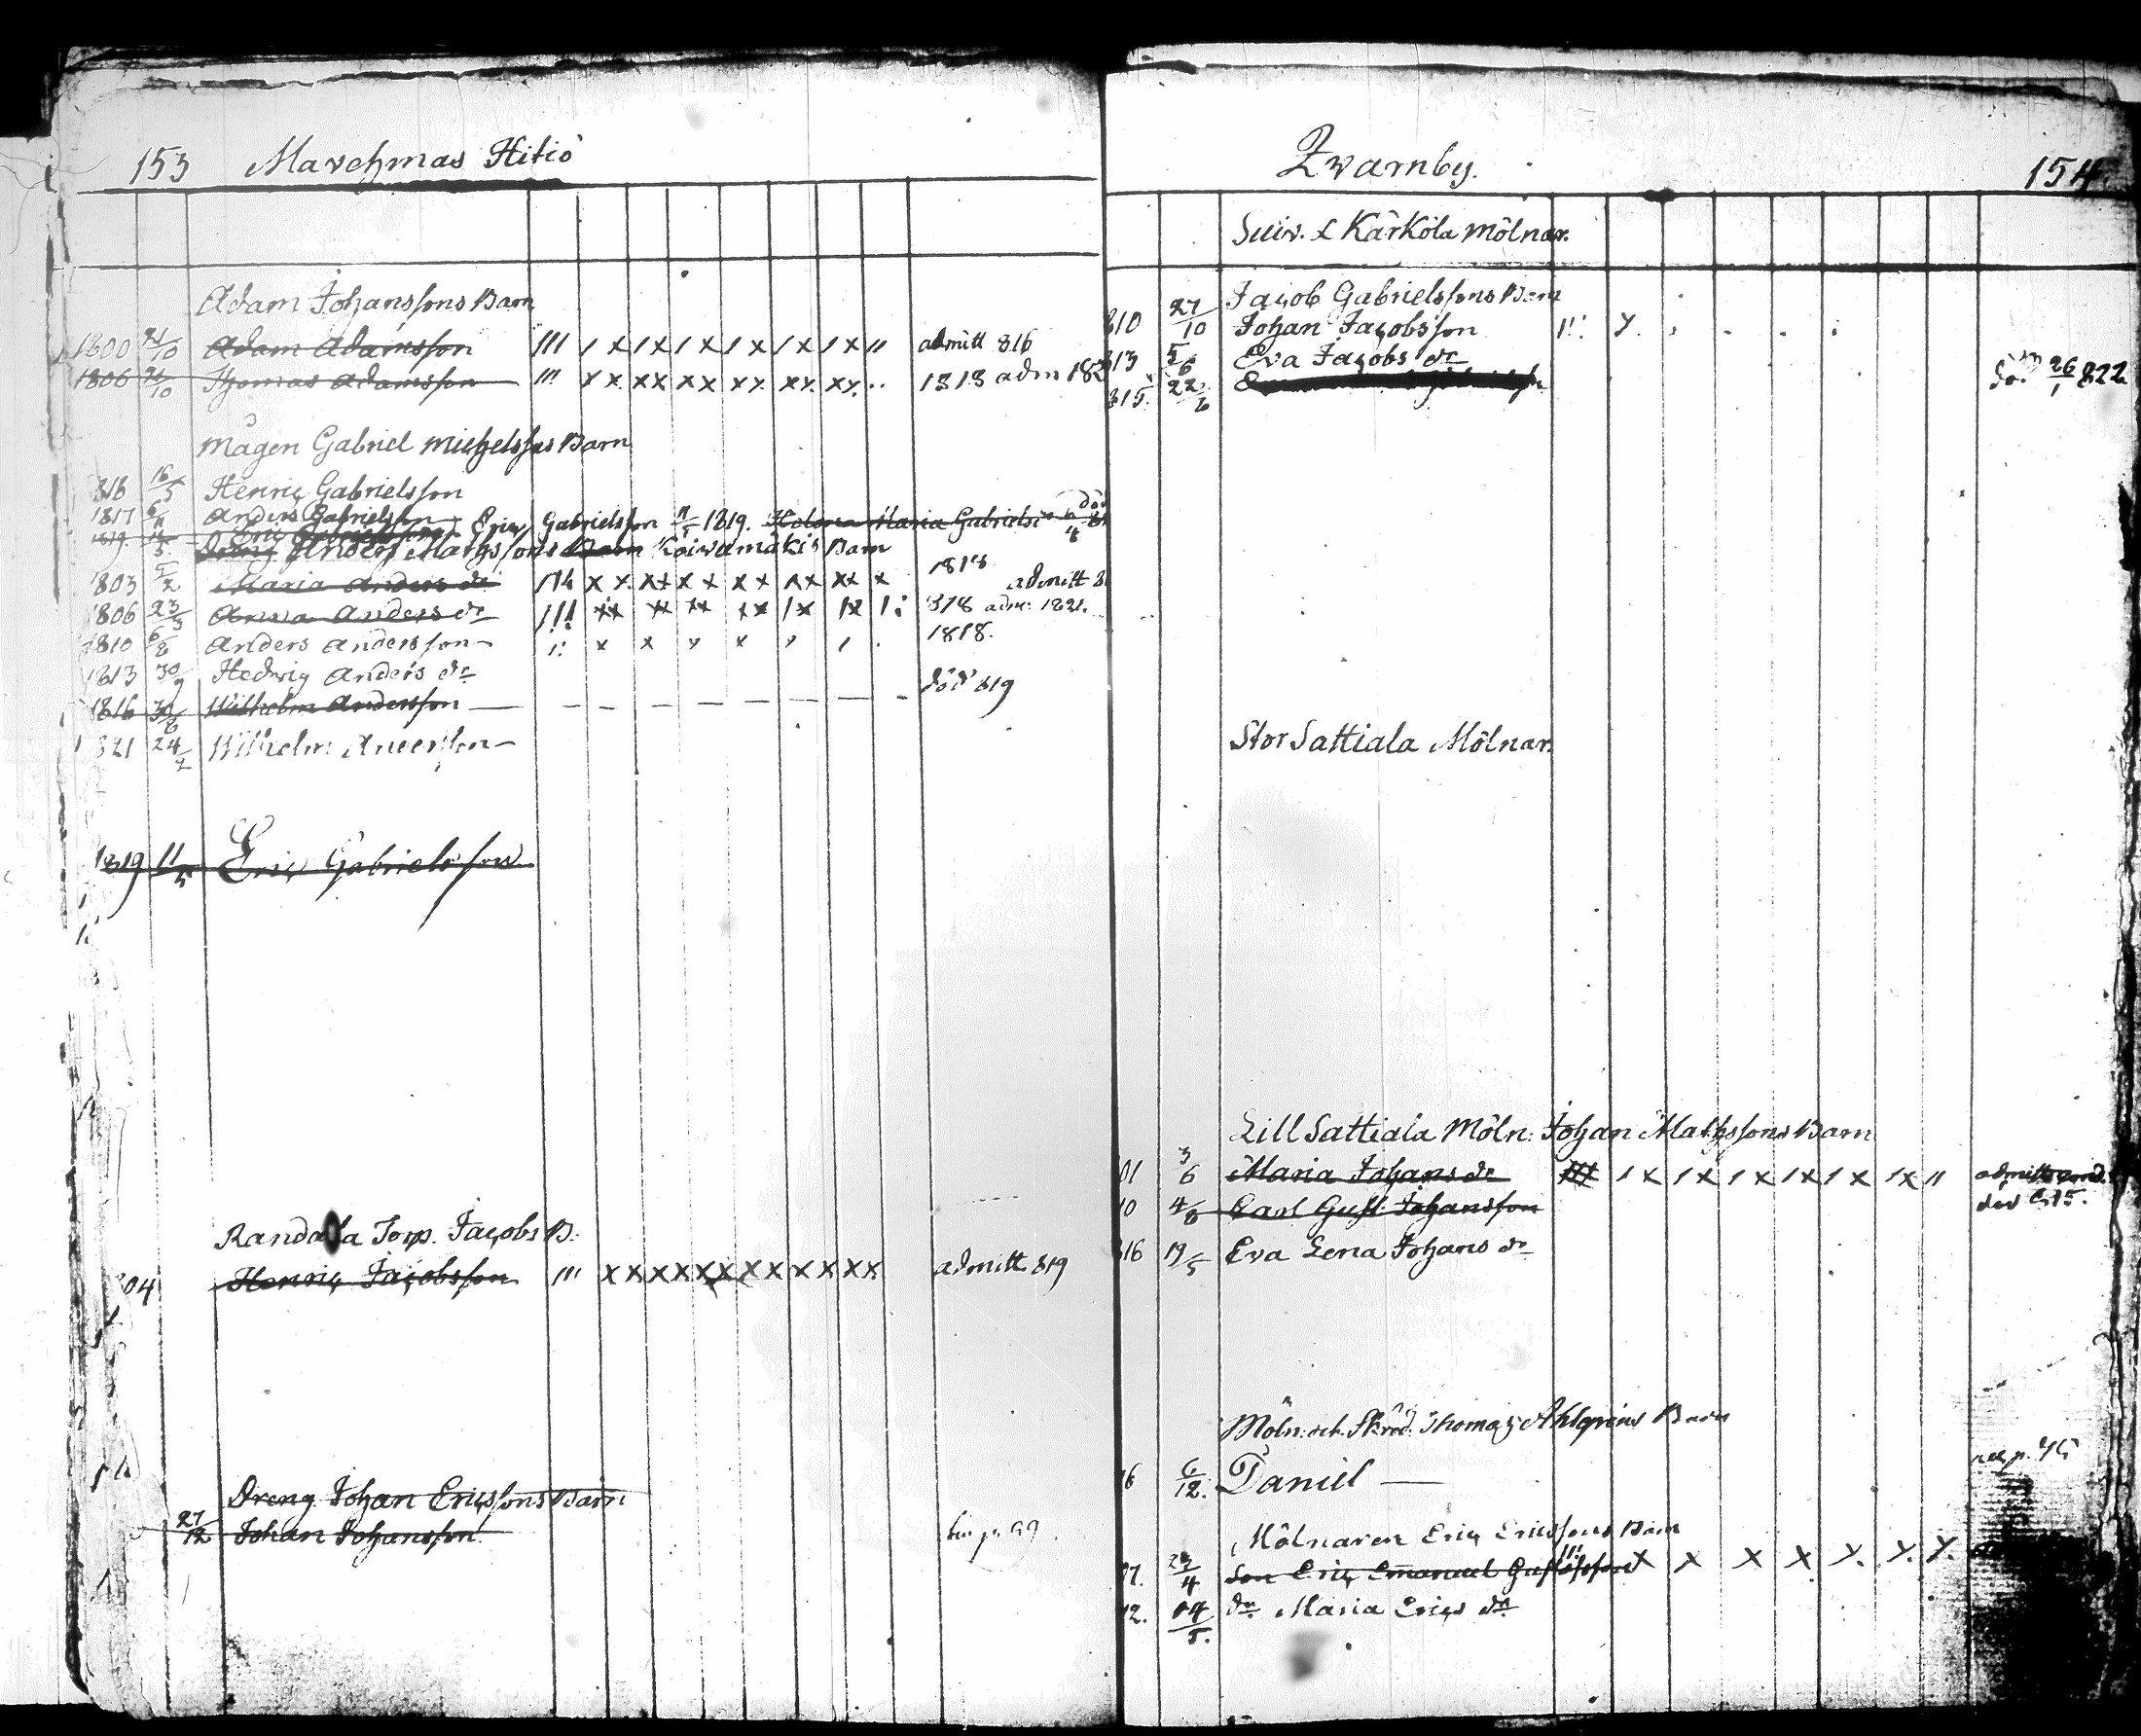 153 Marchmas Hitiö
Adam Johanssons Barn
1800 21/10 Adam Adamsson III / x / x / x / x / x / x II admitt 816
1806 21/10 Thomas Adamsson III x x x x x x x x x x x x .. 1818 adm 182
Mågen Gabriel Michelssons Barn
816 16/5 Henric Gabrielsson
1817 6/11 Anders Gabrielsson
1819 11/5 Eric Gabrielsson Eric Gabrielsson 11/5 1819. Helena Maria Gabrielsd död
Dreng Anders Mathssons Barn Koiwamäkis Barn
1803 5/2 Maria Anders dr x x x x x x x x x x x x x 1818 admitt 8
1806 23/3 Anna Anders dr III xx xx xx xx / x / x 818 adm: 1821.
1810 6/8 Anders Andersson x x x x 1818.
1813 30/9 Hedvig Anders dr
1816 30/6 Wilhelm Andersson — — — — — — — död 819
1821 24/7 Wilhelm Andersson
1819 11/5 Eric Gabrielsson
Randala Torp. Jacobs B.
804 Henric Jacobsson III x x x x x x x x x x x x admitt 819
Dreng Johan Ericssons Barn
27/12 Johan Johansson
Qvarnby. 154.
Suiv. L Kärkölä Mölnar.
Jacob Gabrielssons Barn
810 27/10 Johan Jacobsson
813 5/6 Eva Jacobs dr
815. 22/6 död 26/1 822
Stor Sattiala Mölnar.
Lill Sattiala Möln: Johan Mathssons Barn
01 3/6 Maria Johans dr III / x / x / x / x / x / x II
10 4/8 Carl Gust. Johansson
816 19/5 Eva Lena Johans dr
Möln: och Skräd. Thomas Ahlqvists Barn
16 6/12. Daniel —
Mölnaren Eric Ericssons Barn
4 Son Eric Emanuel Gustafsson III x x x x
12. 5. dr Maria Erics dr